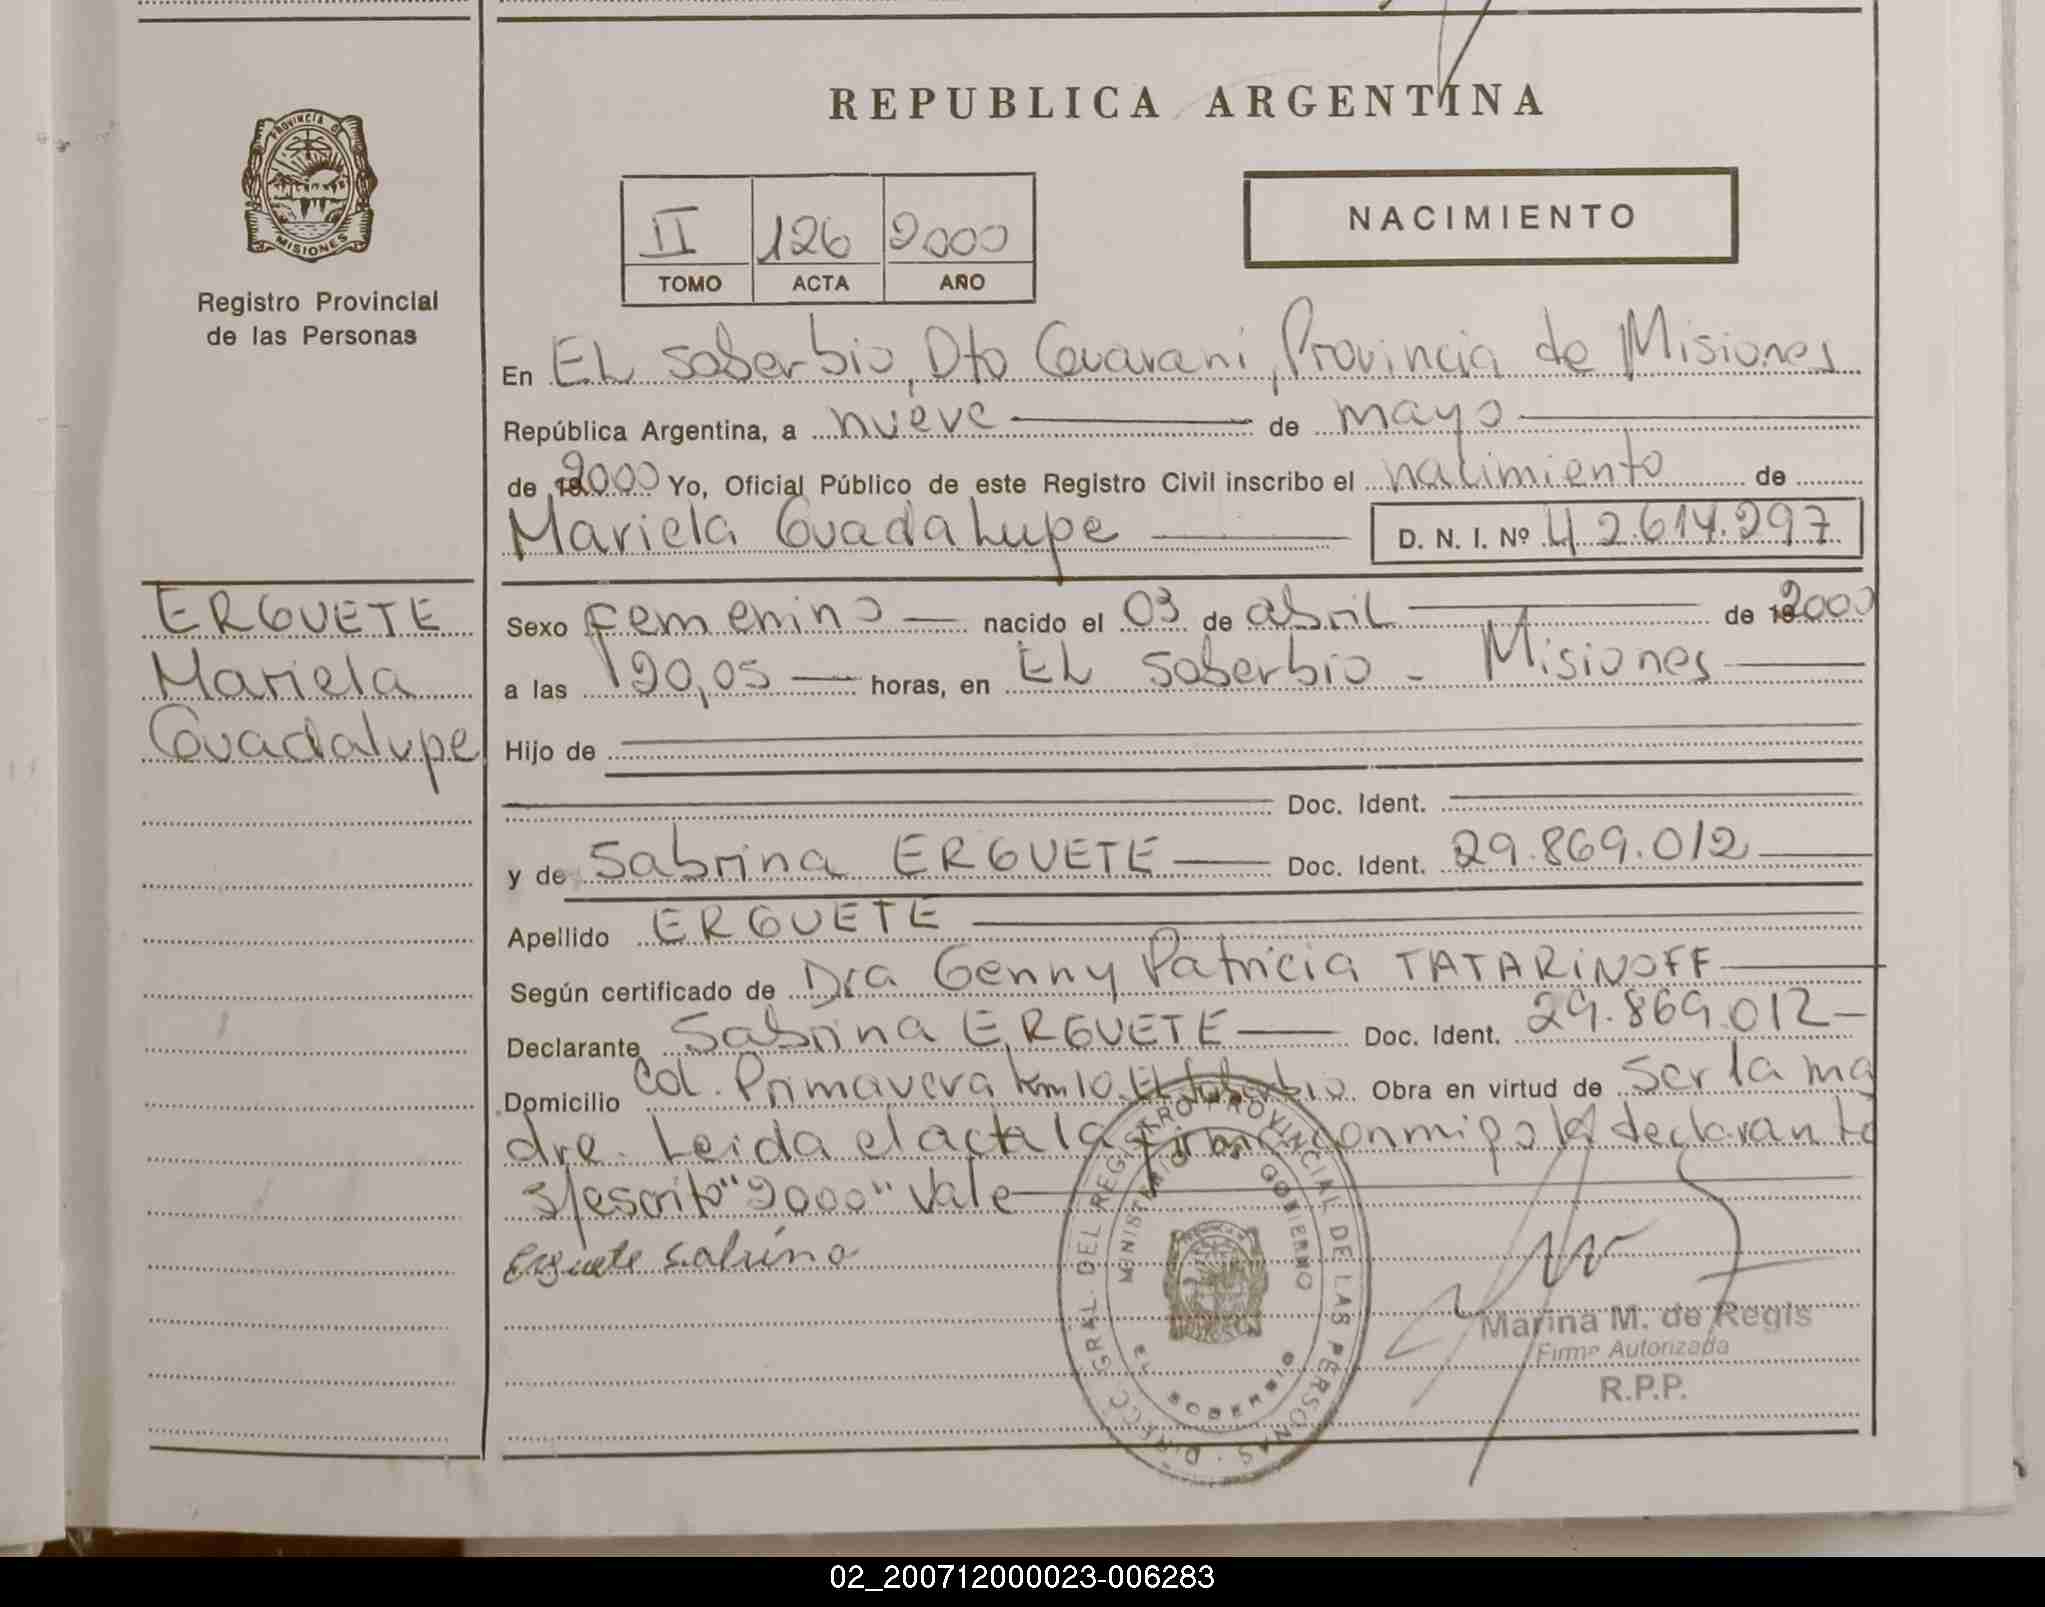 REPUBLICA ARGENTINA
PROVINCIA DE
MISIONES
Registro Provincial
de las Personas
II 126 2000
TOMO ACTA AÑO
NACIMIENTO
En EL soberbio, Dto Guarani, Provincia de Misiones
República Argentina, a nueve de mayo
de 2000 Yo, Oficial Público de este Registro Civil inscribo el nacimiento de
Mariela Guadalupe D. N. I. Nº 42.614.297
ERGUETE
Mariela
Guadalupe
Sexo Femenino nacido el 03 de abril de 2000
a las 20,05 horas, en EL soberbio - Misiones
Hijo de
Doc. Ident.
y de Sabrina ERGUETE Doc. Ident. 29.869.012
Apellido ERGUETE
Según certificado de Dra Genny Patricia TATARINOFF
Declarante Sabrina ERGUETE Doc. Ident. 29.869.012
Domicilio Col. Primavera km 10. El Soberbio Obra en virtud de ser la ma
dre. Leida el acta la firma conmigo la declarante
s/escrito "2000" Vale
Erguete Sabrina
DIRECC. GRAL. DEL REGISTRO PROVINCIAL DE LAS PERSONAS
MINISTERIO DE GOBIERNO
EL SOBERBIO
Marina M. de Regis
Firma Autorizada
R.P.P.
02_200712000023-006283